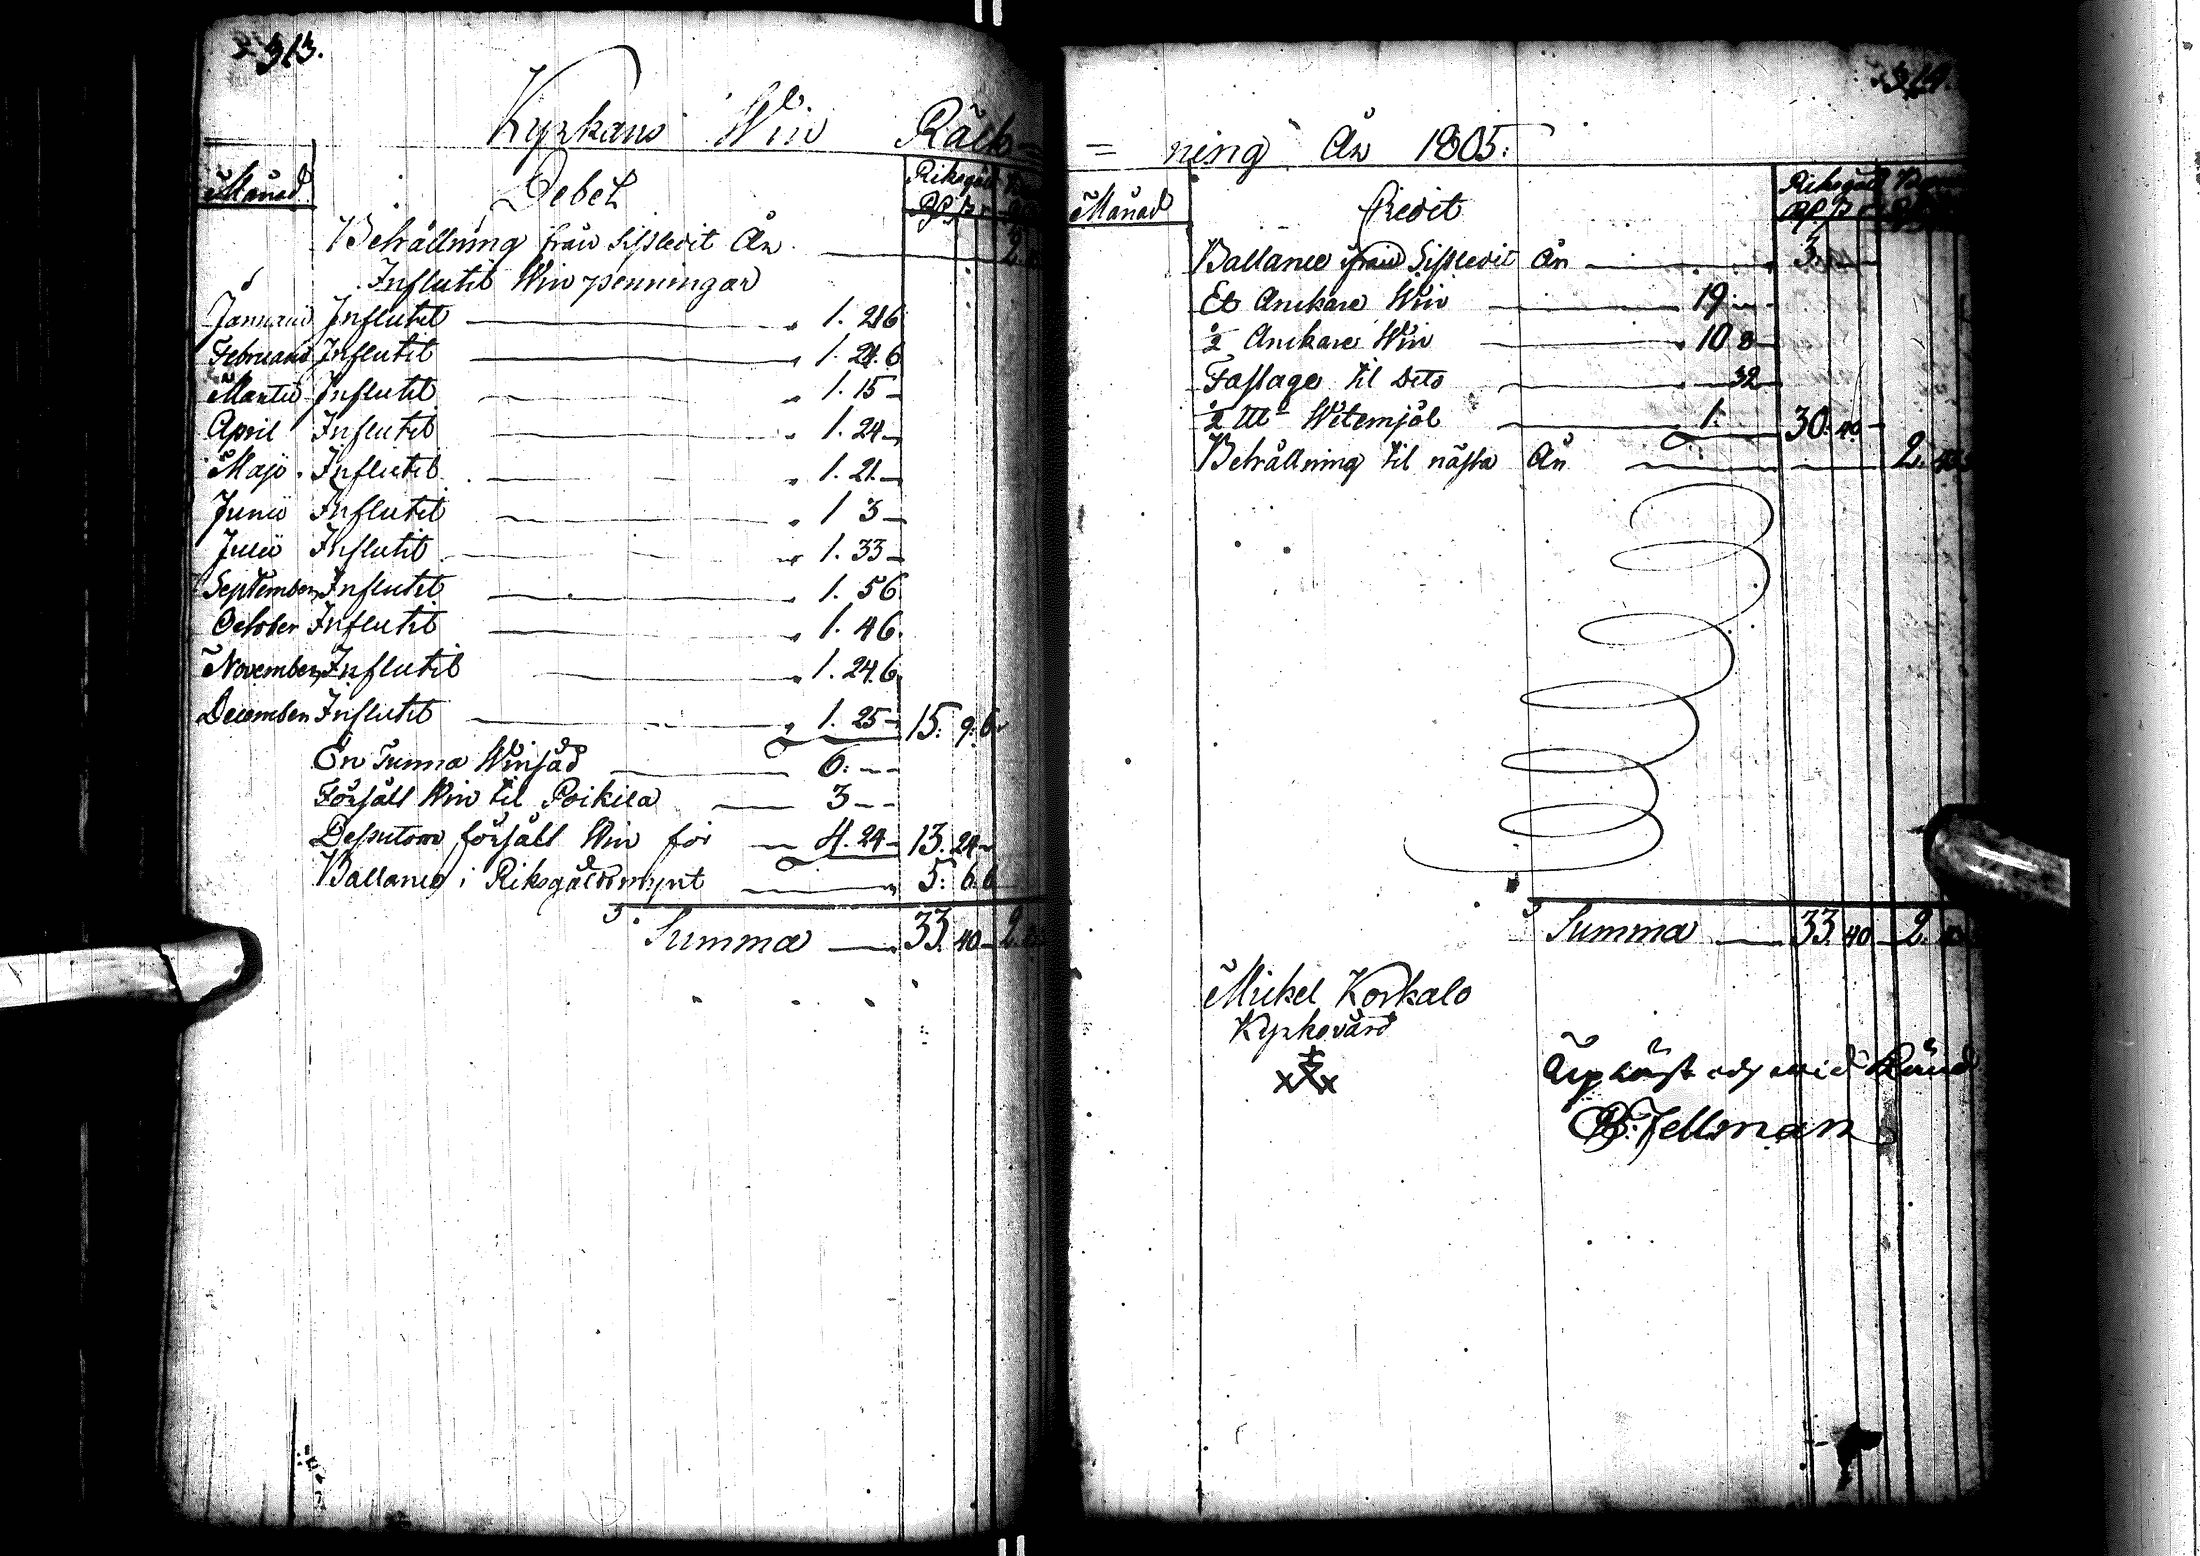 313.
Kyrkans Win Räck=
Månad Debet Riksgäld
Behållning från sistledit År 2.
Influtit Win penningar
Januarii Influtit 1. 21 6
Februarii Influtit 1. 24. 6
Martii Influtit 1. 15 –
April Influtit 1. 24 –
Maji Influtit 1. 21. –
Junii Influtit 1 3 –
Julii Influtit 1. 33 –
September Influtit 1. 5 6
October Influtit 1. 4 6.
November Influtit 1. 24. 6
December Influtit 1. 25 – 15: 9: 6
En Tunna Winsäd 6. – –
Försålt Win til Poikila 3 – –
Dessutom försålt Win för 4. 24 – 13. 24 –
Ballance i Riksgäldsmynt 5: 6. 6
Summa 33. 40 – 2.
314.
= ning År 1805.
Månad Credit Riksgäld
Ballance ifrån Sistledit År 3.
Et Anckare Win 19
½ Anckare Win 10 8 –
Fastage til Dito 32 –
½ Wetemjöl 1. 30. 40 –
Behållning til nästa År 2. 40
Summa 33. 40 – 2.
Mickel Korkalo
Kyrkovärd
Upläst och wid
Fellman